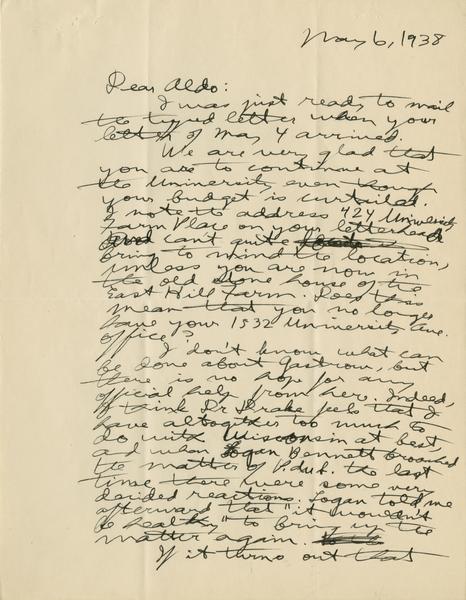 May 6, 1938
Dear Aldo:
I was just ready to mail
the typed letter when your
letter of May 4 arrived.
We are very glad that
you are to continue at
the University even though
your budget is curtailed.
I note the address 424 University
Farm Place on your letterhead
can't quite
bring to mind the location,
unless you are now in
the old stone house of the
East Hill Farm. Does this
mean that you no longer
have your 1532 University Ave.
office?
I don't know what can
be done about Gastrow, but
there is no hope for any
official help from here. Indeed,
I think Dr Drake feels that I
have altogether too much to
do with Wisconsin at best
and when Logan Bennett broached
the matter of the last
time there were some very
decided reactions. Logan told me
afterward that "it wouldn't
be healthy" to bring up the
matter again.
If it turns out that